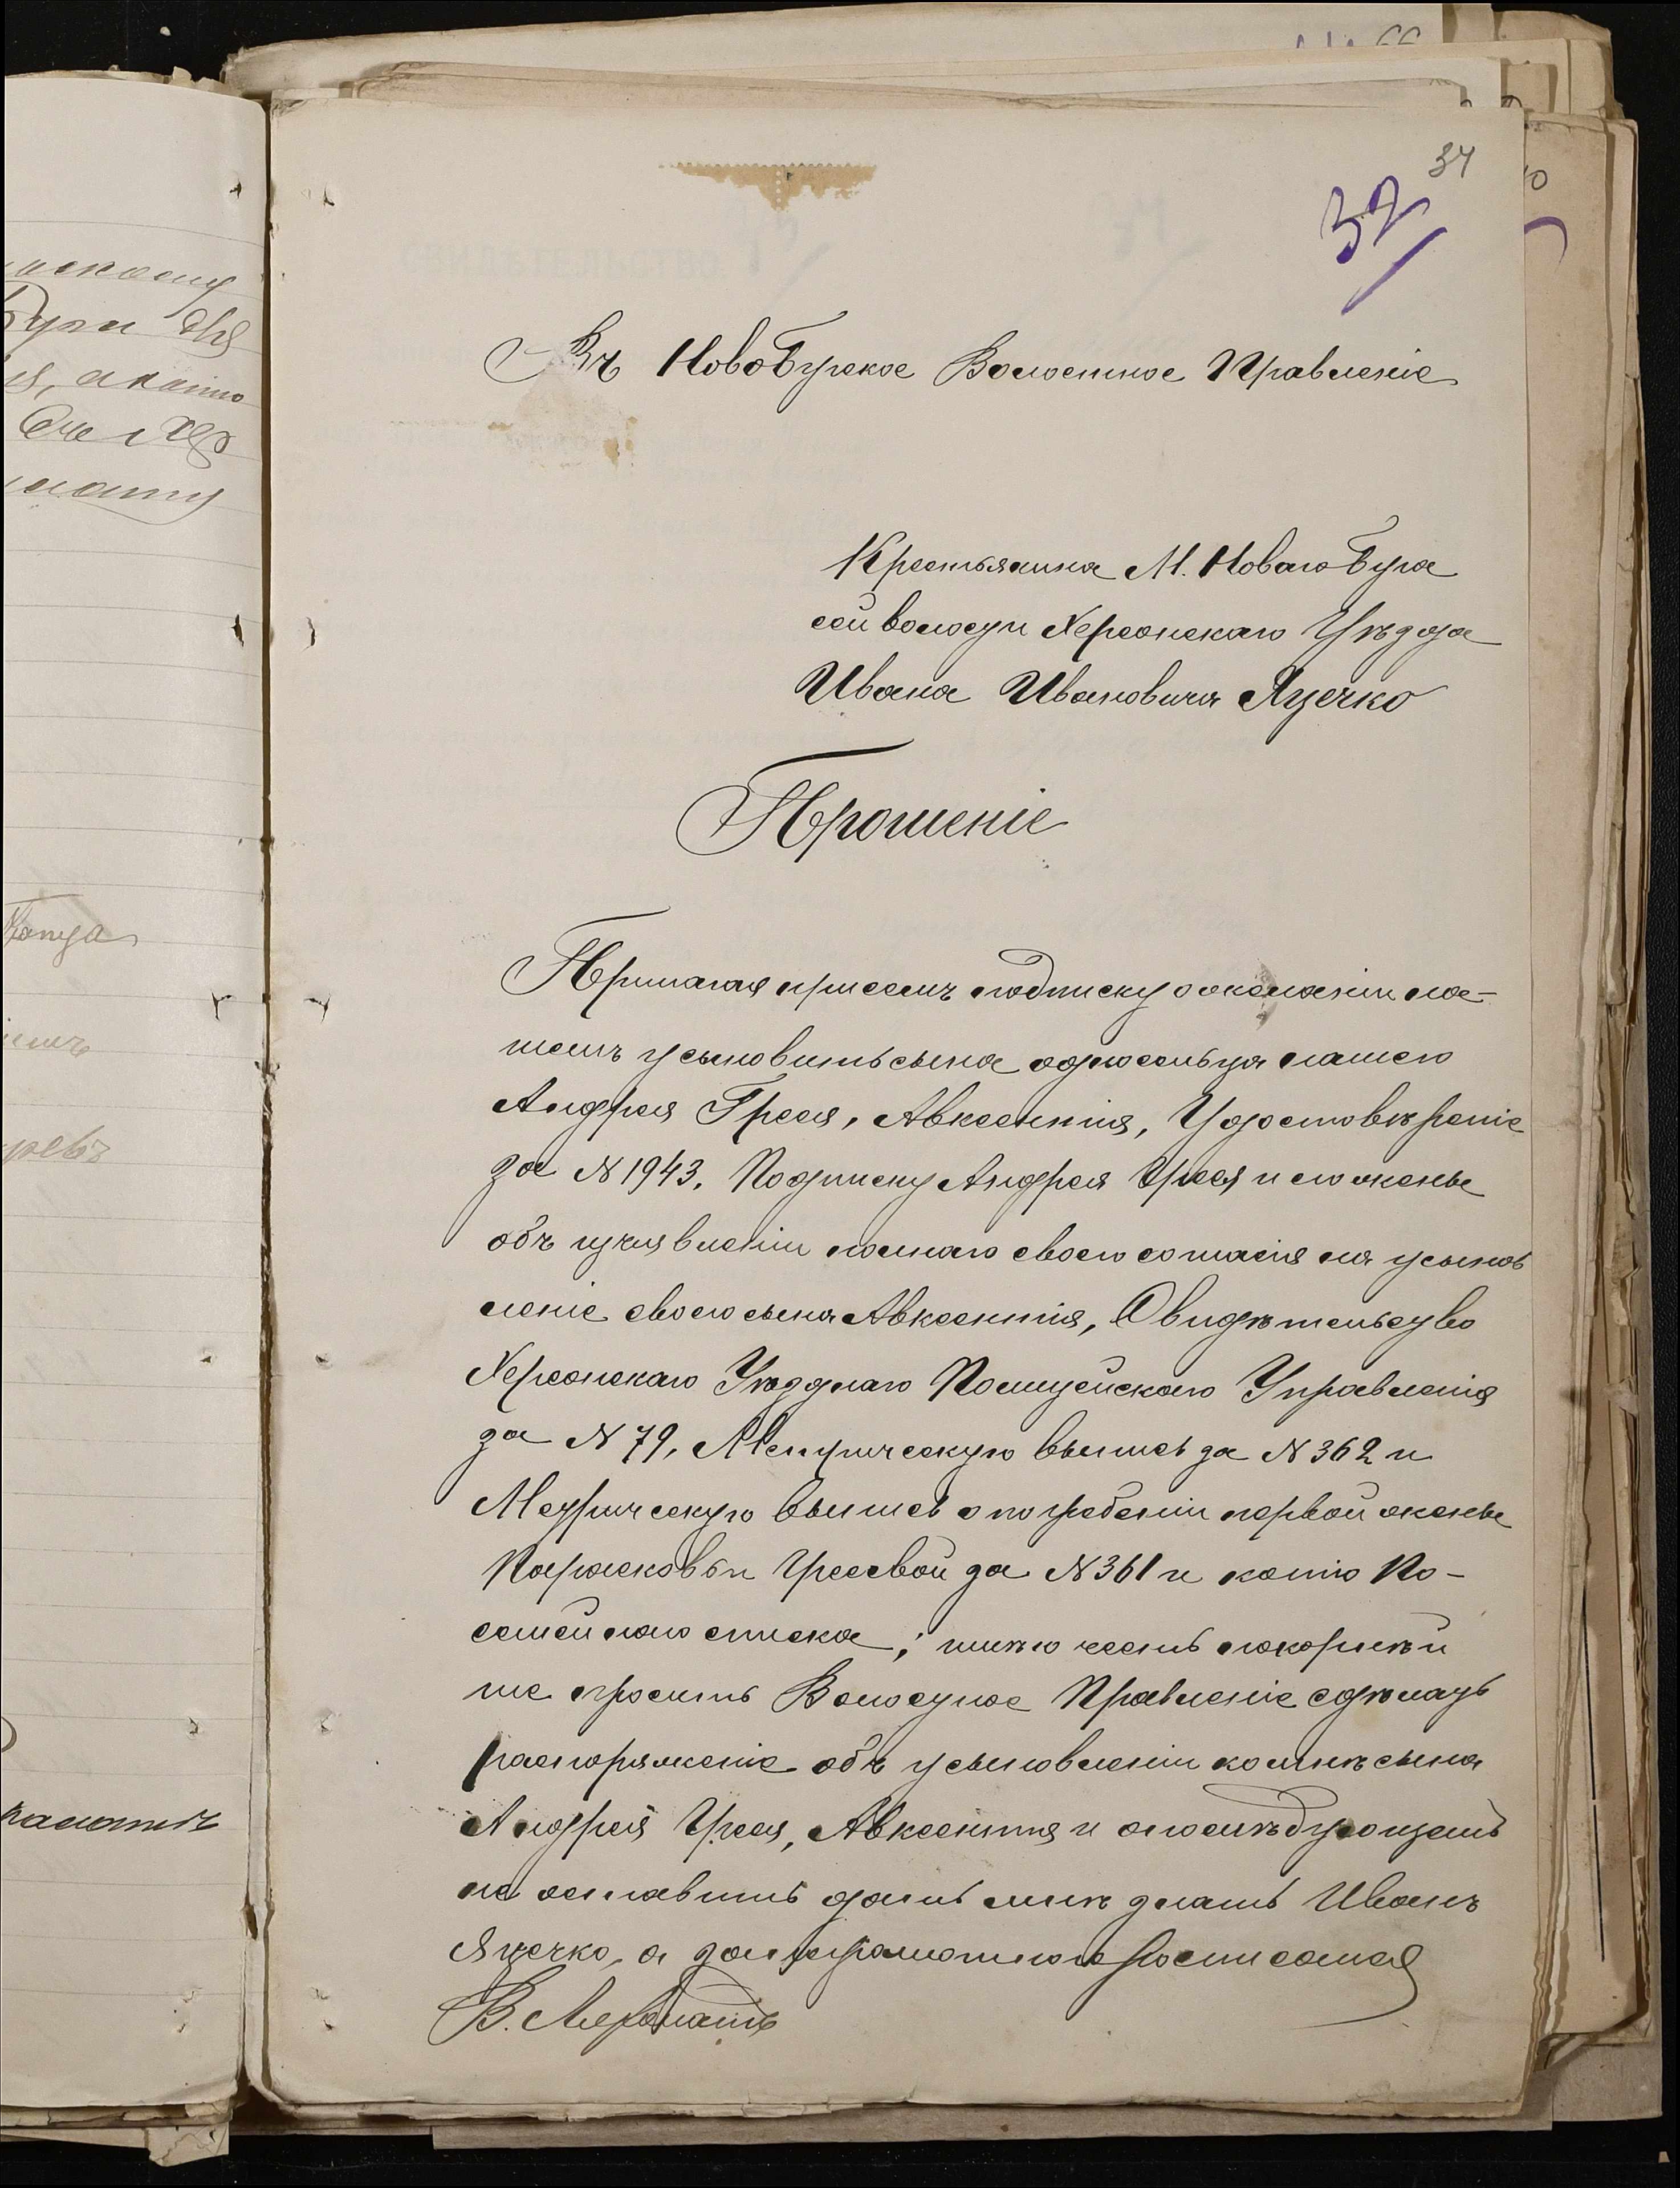 34
37
Въ НовоБугское Волостное Правленіе
Крестьянина М. Новаго Буга
сей волости Херсонскаго Уѣзда
Ивана Ивановича Яцечко
Прошеніе
Прилагая при семъ подписку о желаніи мо-
емъ усыновить сына односельца нашего
Андрея Грея, Авксентія, Удостовѣреніе
за N 1943, Подписку Андрея Грея и его жены
объ изъявленіи полнаго своего согласія на усынов
леніе своего сына Авксентія, Свидѣтельство
Херсонскаго Уѣзднаго Полицейскаго Управленія
за N 79, Метрическую выпись за N 362 и
Метрическую выпись о погребеніи первой жены
Парасковьи Греевой за N 361 и копію По-
семейнаго списка; имѣю честь покорнѣй
ше просить Волостное Правленіе сдѣлать
распоряженіе объ усыновленіи ко мнѣ сына
Андрея Грея, Авксентія и о послѣдующемъ
не оставить дать мнѣ знать Иванъ
Яцечко, а за неграмотнаго росписался
В.